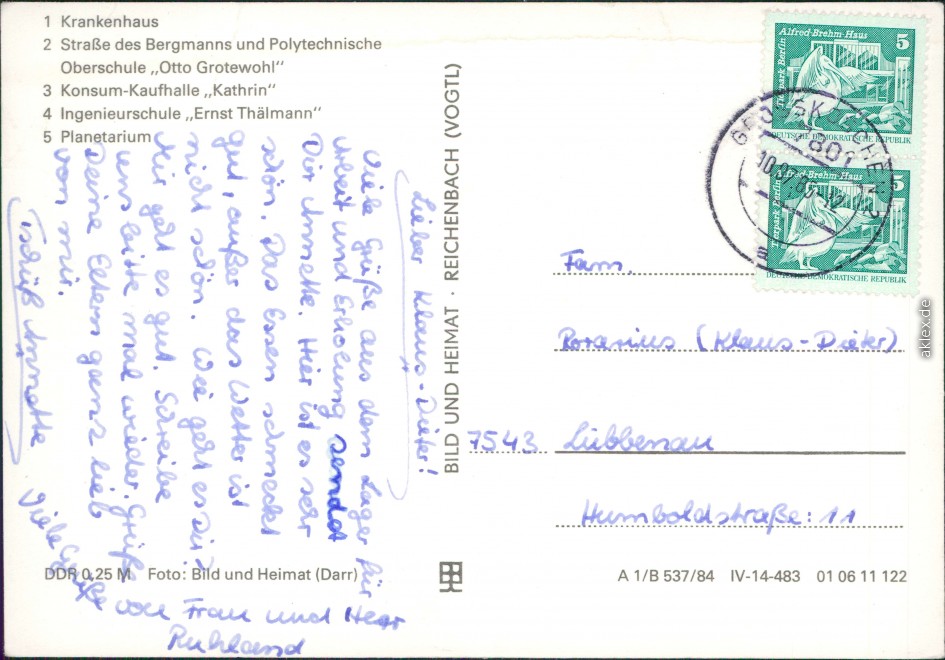 1 Krankenhaus
2 Straße des Bergmanns und Polytechnische
Oberschule „Otto Grotewohl“
3 Konsum-Kaufhalle „Kathrin“
4 Ingenieurschule „Ernst Thälmann“
5 Planetarium
Lieber Klaus-Dieter!
Viele Grüße aus dem Lager für
Arbeit und Erholung sendet
Dir Annette. Hier ist es sehr
schön. Das Essen schmeckt
gut, außer das Wetter ist
nicht schön. Wie geht es Dir?
Mir geht es gut. Schreibe
uns bitte mal wieder. Grüße
Deine Eltern ganz lieb
von mir.
Tschüß Annette
Viele Grüße von Frau und Herr
Ruhland
DDR 0,25 M Foto: Bild und Heimat (Darr)
BILD UND HEIMAT · REICHENBACH (VOGTL)
Tierpark Berlin
Alfred-Brehm-Haus
5
DEUTSCHE DEMOKRATISCHE REPUBLIK
Tierpark Berlin
Alfred-Brehm-Haus
5
DEUTSCHE DEMOKRATISCHE REPUBLIK
7801
Fam.
(Klaus-Dieter)
7543 Lübbenau
Humboldstraße: 11
A 1/B 537/84 IV-14-483 01 06 11 122
aklex.de